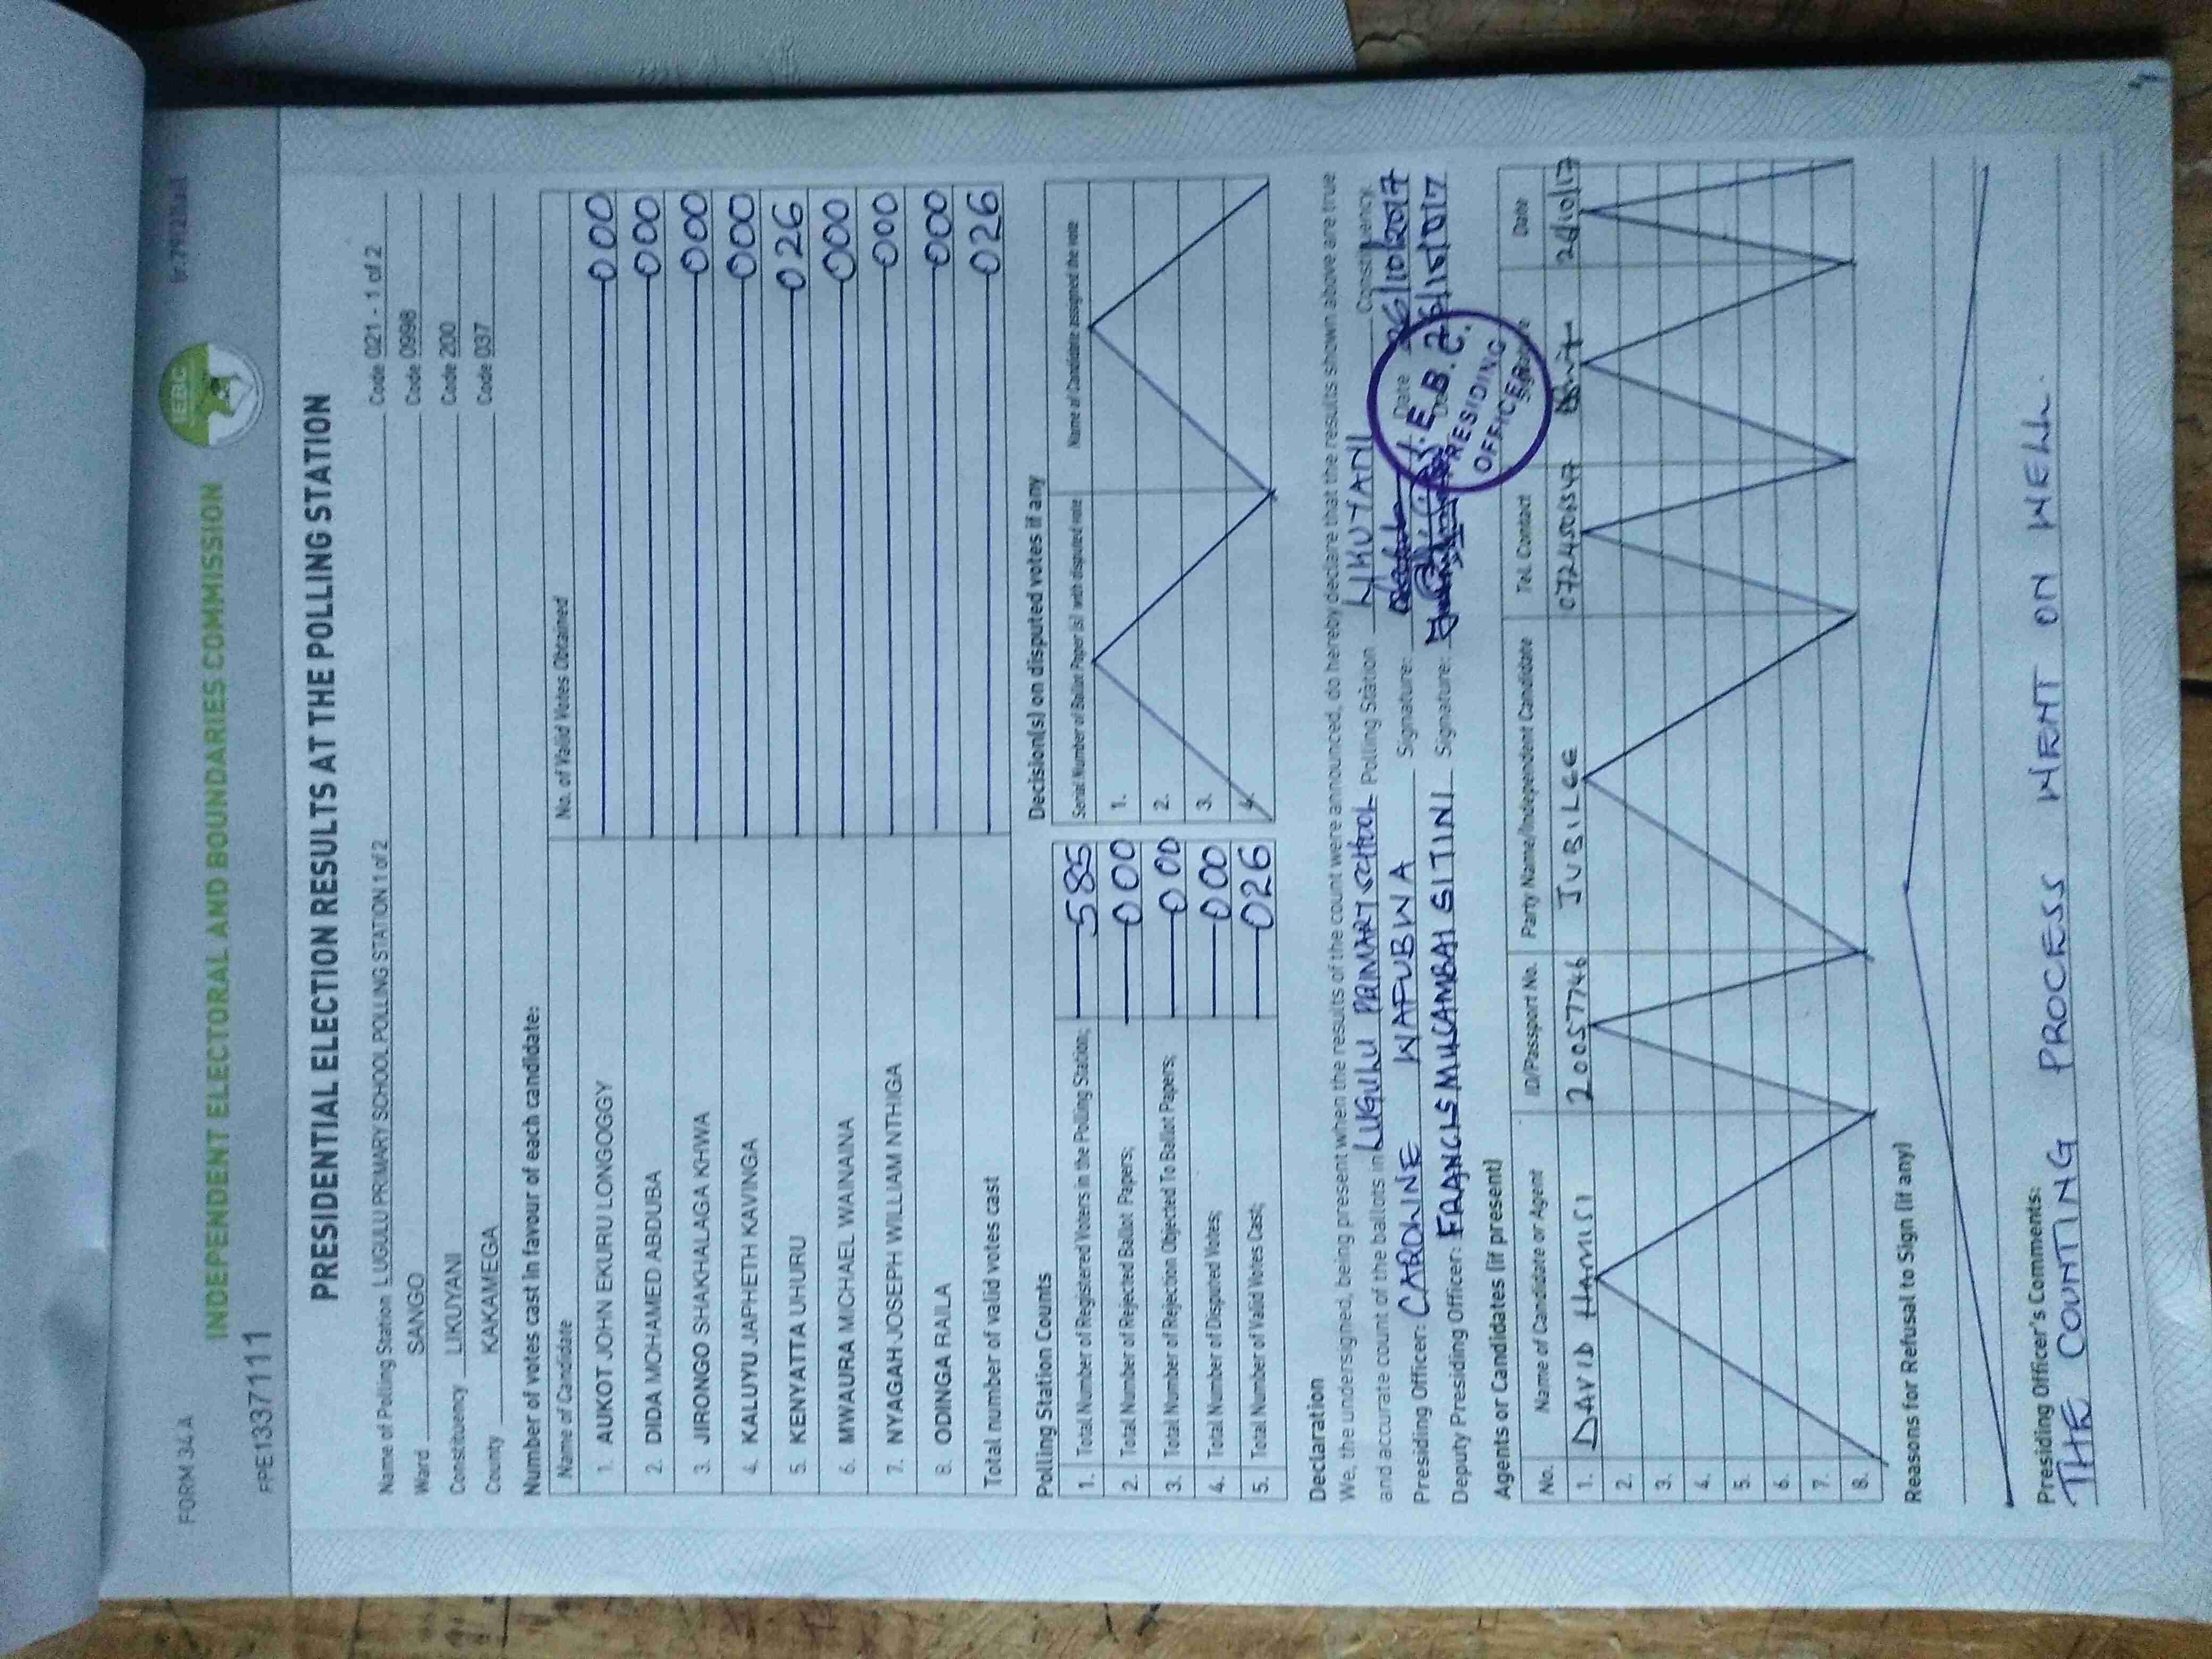 FORM 34A
INDEPENDENT ELECTORAL AND BOUNDARIES COMMISSION
IEBC
FPE1337111
PRESIDENTIAL ELECTION RESULTS AT THE POLLING STATION
Name of Polling Station LUGULU PRIMARY SCHOOL POLLING STATION 1 of 2 Code 021 - 1 of 2
Ward SANGO Code 0998
Constituency LIKUYANI Code 200
County KAKAMEGA Code 037
Number of votes cast in favour of each candidate:
Name of Candidate No. of Valid Votes Obtained
1. AUKOT JOHN EKURU LONGOGGY 000
2. DIDA MOHAMED ABDUBA 000
3. JIRONGO SHAKHALAGA KHWA 000
4. KALUYU JAPHETH KAVINGA 000
5. KENYATTA UHURU 026
6. MWAURA MICHAEL WAINAINA 000
7. NYAGAH JOSEPH WILLIAM NTHIGA 000
8. ODINGA RAILA 000
Total number of valid votes cast 026
Polling Station Counts
1. Total Number of Registered Voters in the Polling Station; 585
2. Total Number of Rejected Ballot Papers; 000
3. Total Number of Rejection Objected To Ballot Papers; 000
4. Total Number of Disputed Votes; 000
5. Total Number of Valid Votes Cast; 026
Decision(s) on disputed votes if any
Serial Number of Ballot Paper (s) with disputed vote Name of Candidate assigned the vote
1.
2.
3.
4.
Declaration
We, the undersigned, being present when the results of the count were announced, do hereby declare that the results shown above are true
and accurate count of the ballots in LUGULU PRIMARY SCHOOL Polling Station LIKUYANI Constituency.
Presiding Officer: CAROLINE WAFUBWA Signature: Date 26/10/2017
Deputy Presiding Officer: FRANCIS MULAMBAI SITINI Signature: Date 26/10/2017
I.E.B.C.
PRESIDING
OFFICER
Agents or Candidates (if present)
No. Name of Candidate or Agent ID/Passport No. Party Name/Independent Candidate Tel. Contact Signature Date
1. DAVID HAMISI 20057746 JUBILEE 0724506347 26/10/17
2.
3.
4.
5.
6.
7.
8.
Reasons for Refusal to Sign (if any)
Presiding Officer's Comments:
THE COUNTING PROCESS WENT ON WELL.